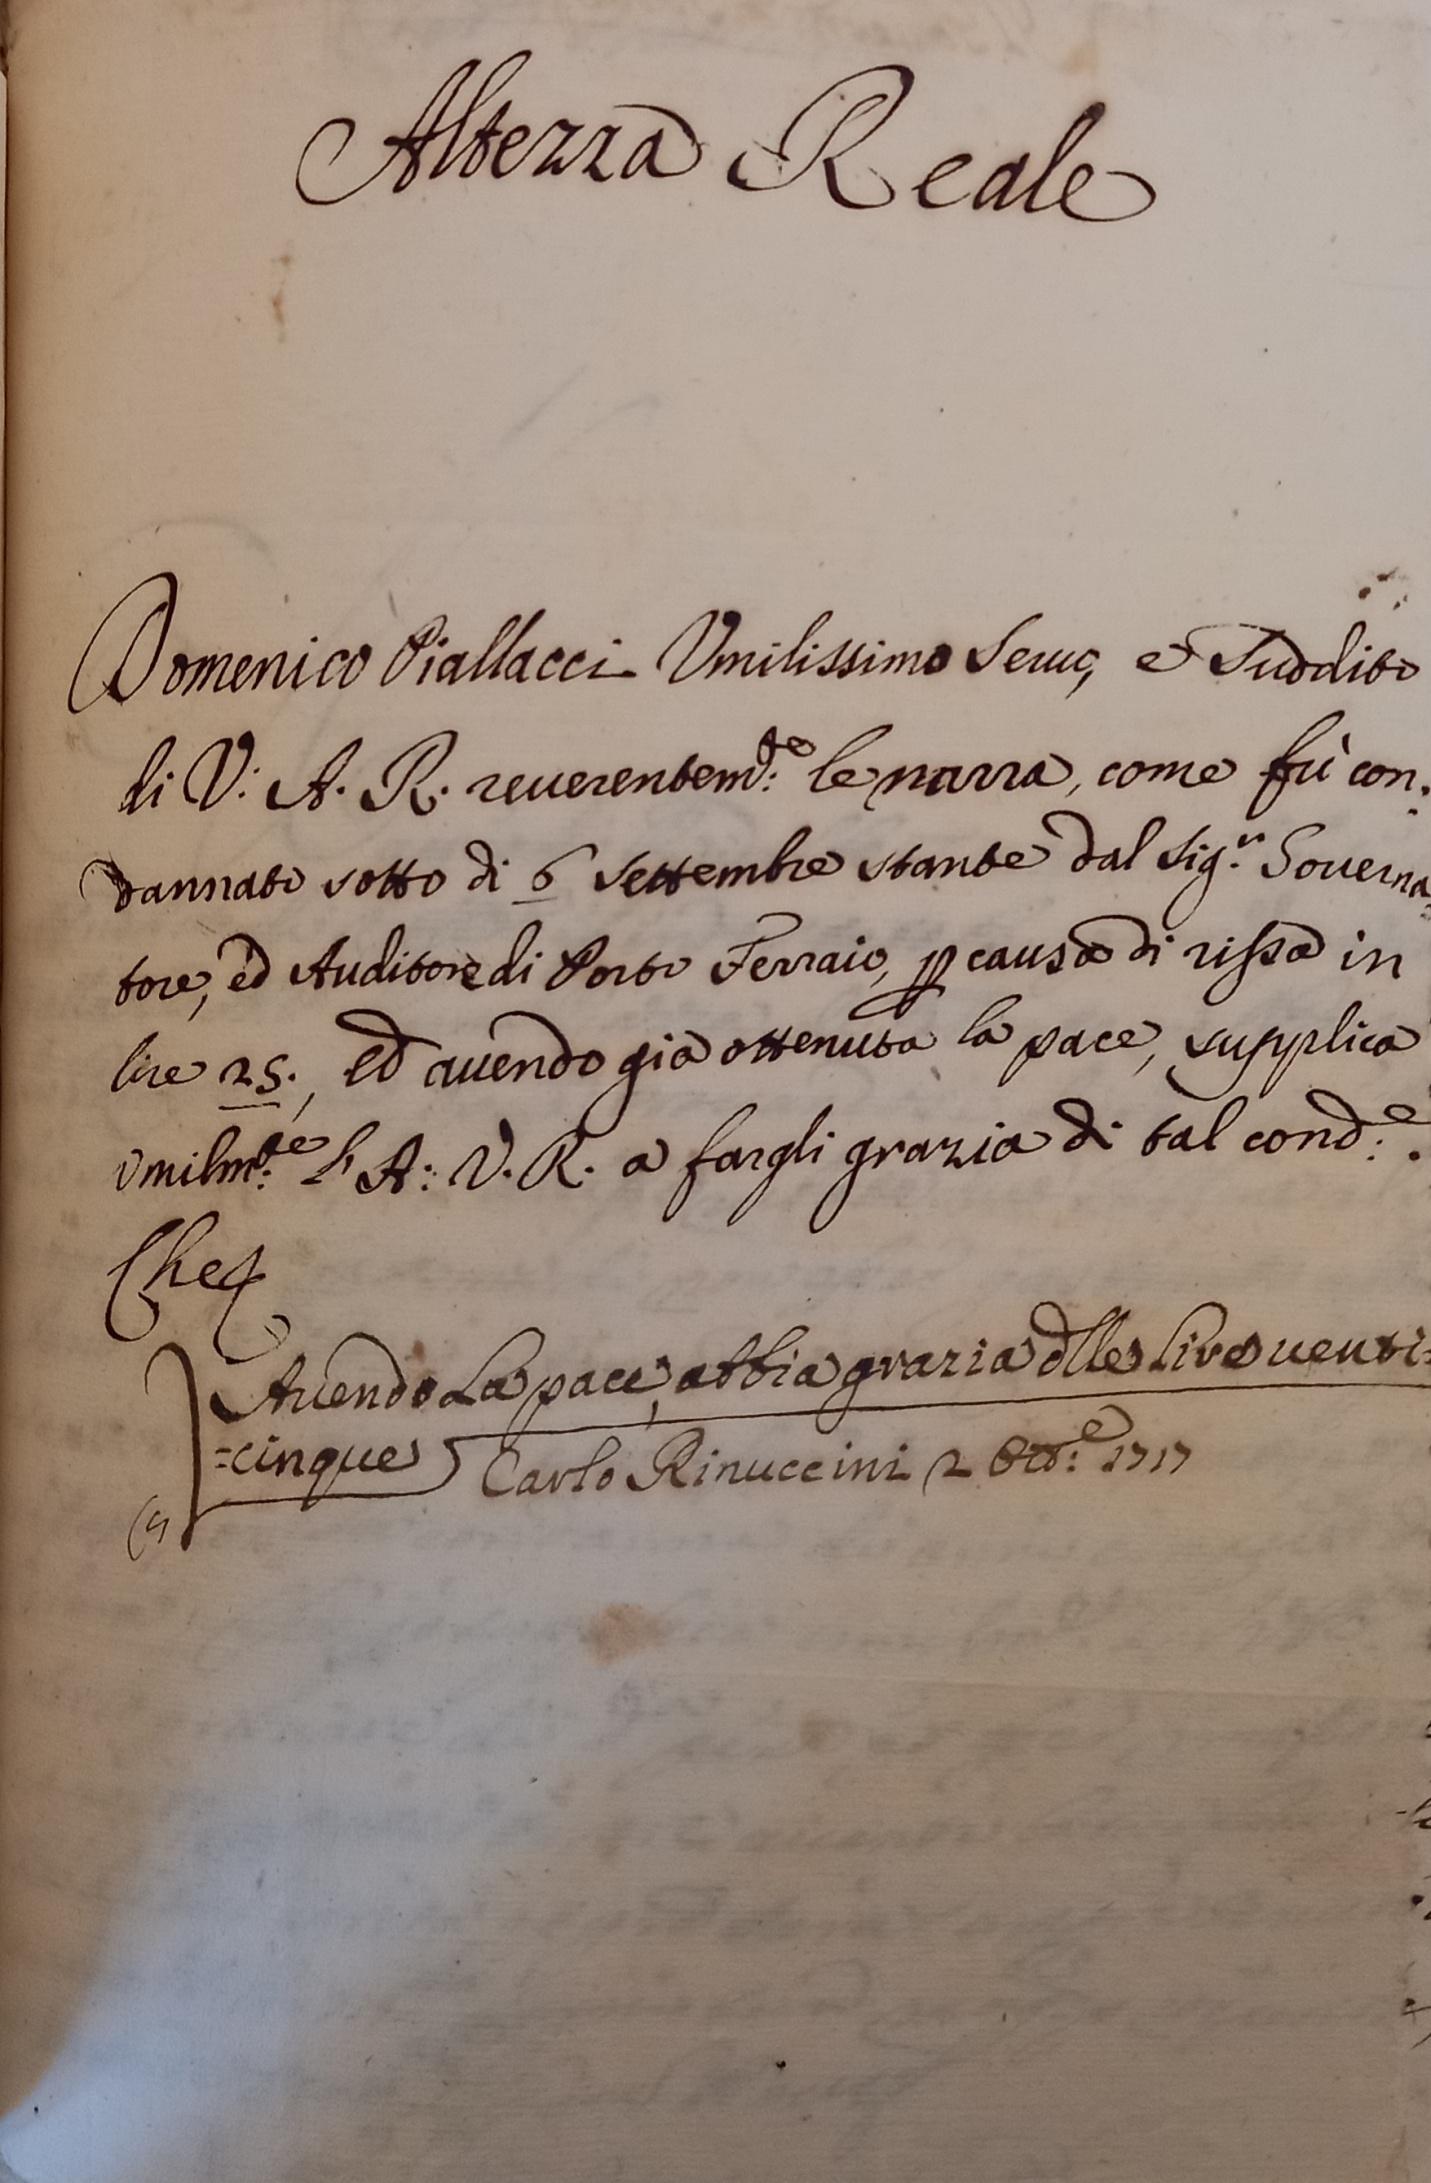 Altezza Reale
Domenico Piallacci Vmilissimo Seruo, e Suddito
di V: A. R. reuerentem:te le narra, come fù con-
dannato sotto di 6 Settembre stante dal Sig.r Gouerna,
tore, ed Auditore di Porto Ferraio, p causa di rissa in
lire 25., ed auendo già ottenuta la pace, supplica
vmilm:te l'A: V. R. a fargli grazia di tal cond:e.
Che
Auendo La pace, abbia grazia dlle Lire uenti=
=cinque Carlo Rinuccini 2 Ott:e 1717